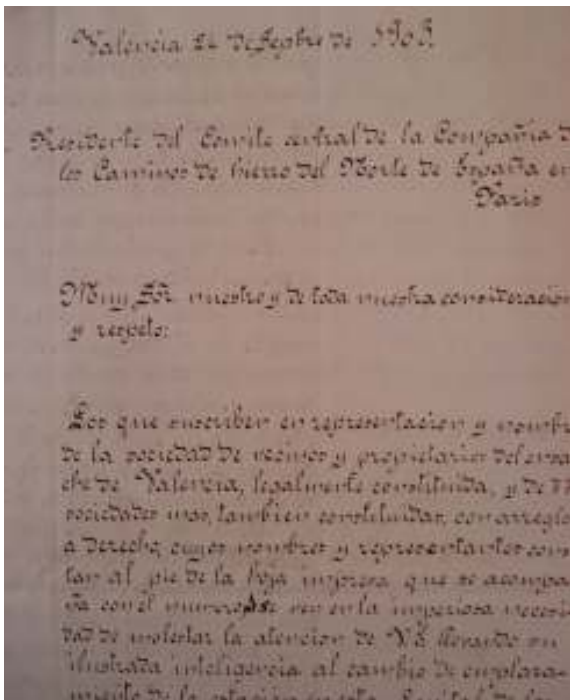 Valencia 24 de Sepbre de 1906
Presidente del Comite central de la Compañia d
los Caminos de hierro del Norte de España en
Paris
Muy Sór nuestro y de toda nuestra consideracion
y respeto:
Los que suscriben en representacion y nombr
de la sociedad de vecinos y propietarios del ensa
che de Valencia, legalmente constituida, y de
sociedades mas, tambien constituidas, con arreglo
a derecho, cuyos nombres y representantes cons
tan al pie de la hoja impresa que se acompa
ña con el numero se ven en la imperiosa necesi
dad de molestar la atencion de V.E. llevando su
ilustrada inteligencia al cambio de emplaza-
miento de la estacion